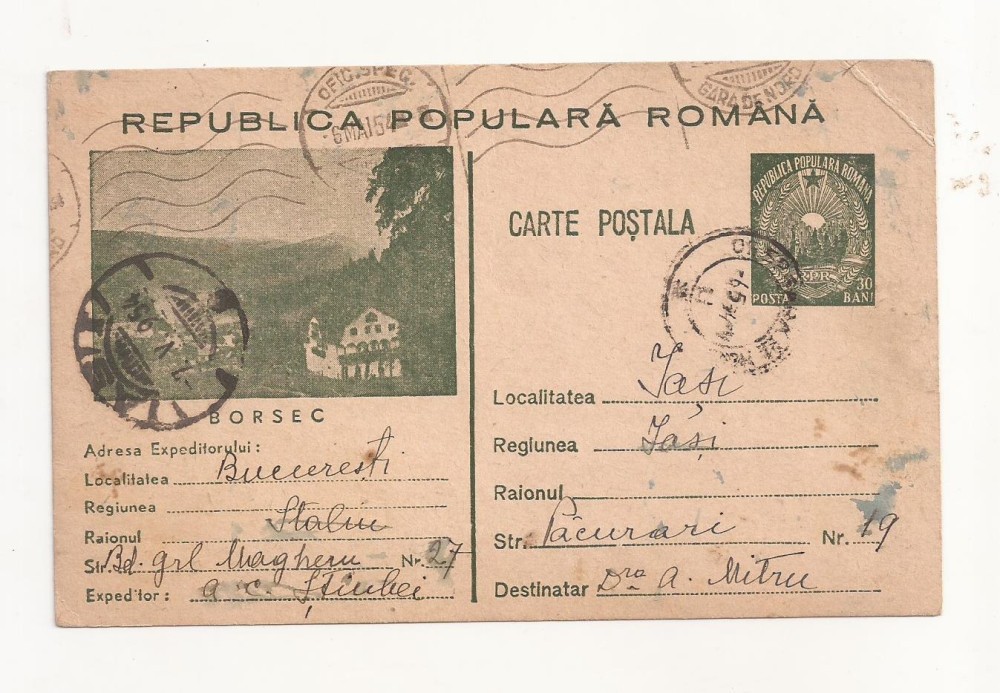 OFIC. SPEG.
6 MAI 54
GARA DE NORD
REPUBLICA POPULARĂ ROMÂNĂ
REPUBLICA POPULARA ROMÂNA
RPR
POSTA 30 BANI
CARTE POȘTALA
IAȘI
BORSEC
Adresa Expeditorului:
Localitatea București
Regiunea
Raionul Stalin
Str. Bd. grl Magheru Nr. 27
Expeditor: a. c. Știubei
Localitatea Iași
Regiunea Iași
Raionul
Str. Păcurari Nr. 19
Destinatar Dra A. Mitru